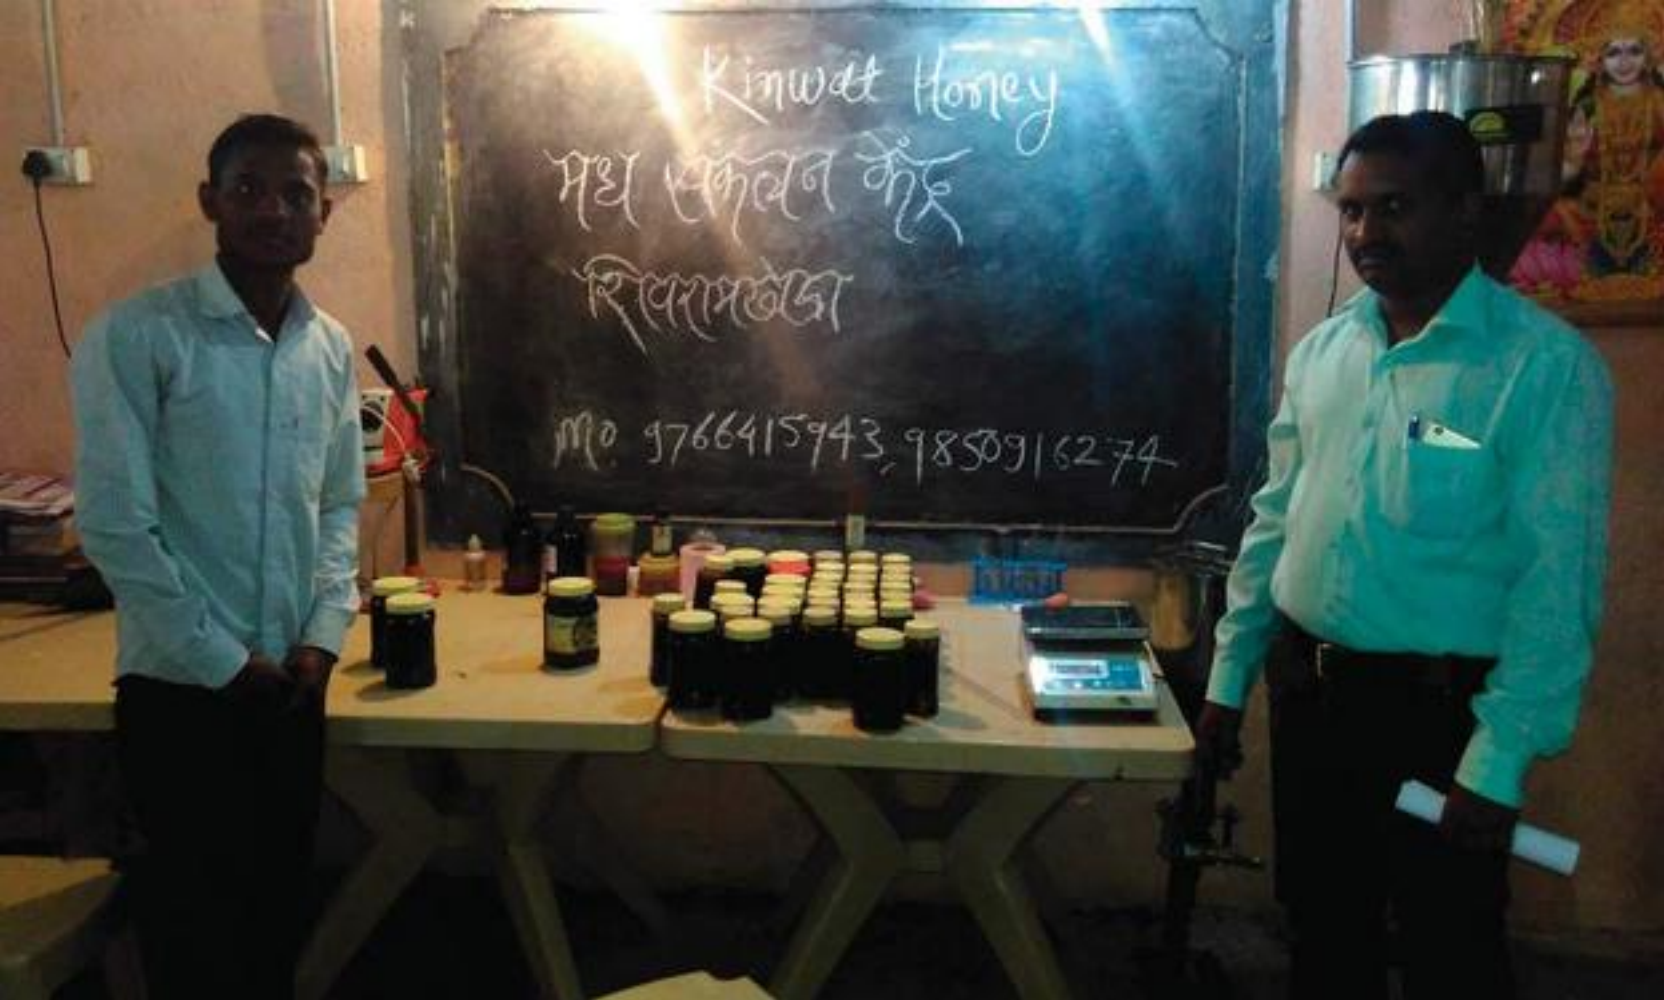 Kinwat Honey
मध संकलन केंद्र
शिवरामखेडा
Mo. 9766415943, 9850916274